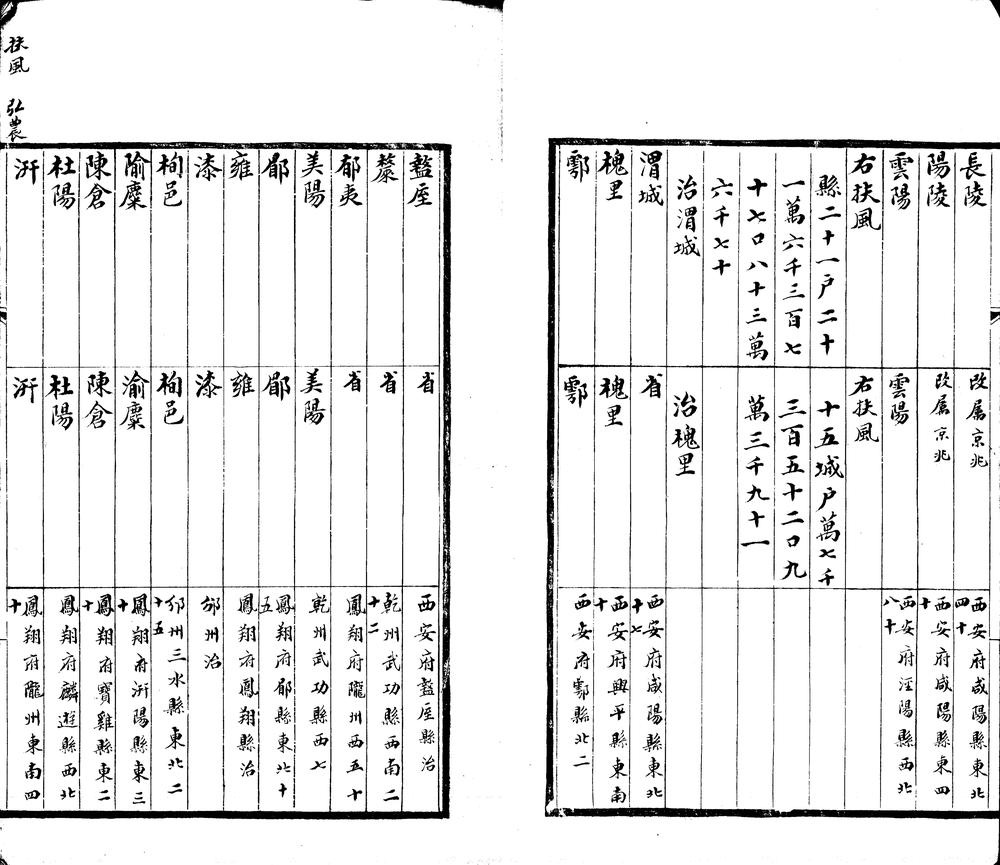 長陵 改屬京兆 西安府咸陽縣東北四十
陽陵 改屬京兆 西安府咸陽縣東四十
雲陽 雲陽 西安府涇陽縣西北八十
右扶風 右扶風
縣二十一户二十 十五城户萬七千
一萬六千三百七 三百五十二口九
十七口八十三萬 萬三千九十一
六千七十
治渭城 治槐里
渭城 省 西安府咸陽縣東北十七
槐里 槐里 西安府興平縣東南十
鄠 鄠 西安府鄠縣北二
盩厔 省 西安府盩厔縣治
斄 省 乾州武功縣西南二十二
郁夷 省 鳳翔府隴州西五十
美陽 美陽 乾州武功縣西七
郿 郿 鳳翔府郿縣東北十五
雍 雍 鳳翔府鳳翔縣治
漆 漆 邠州治
栒邑 栒邑 邠州三水縣東北二十五
隃麋 渝麋 鳳翔府汧陽縣東三十
陳倉 陳倉 鳳翔府寶雞縣東二十
杜陽 杜陽 鳳翔府麟遊縣西北
汧 汧 鳳翔府隴州東南四十
扶風 弘農